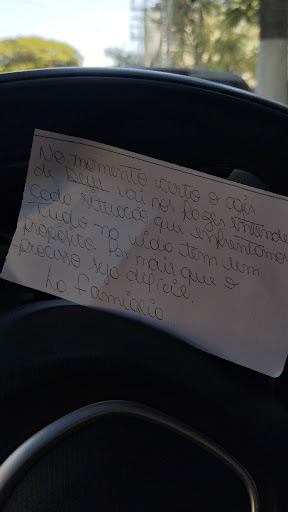 No momento certo o cais
de Deus vai nos fazer entende
cada situação que enfrentamos
Tudo na vida tem um
proposito por mais que o
processo seja dificil.
La Famiglia